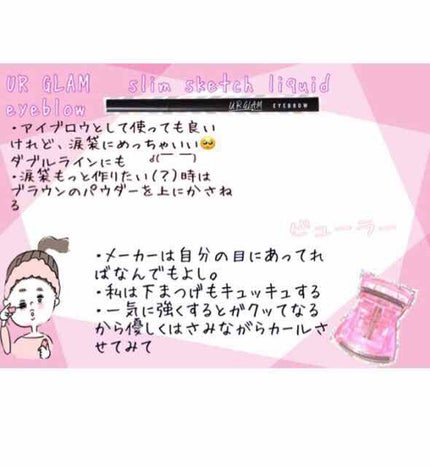 UR GLAM slim sketch liquid
eyeblow
URGLAM EYEBROW
・アイブロウとして使っても良い
けれど、涙袋にめっちゃいい🥺
ダブルラインにも d(￣ ￣)
・涙袋もっと作りたい(?)時は
ブラウンのパウダーを上にかさね
る
ビューラー
・メーカーは自分の目にあってれ
ばなんでもよし。
・私は下まつげもキュッキュする
・一気に強くするとガクッてなる
から優しくはさみながらカールさ
せてみて